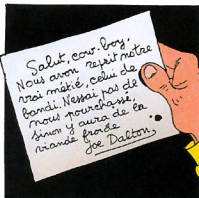 Salut, cow-boy,
Nous avon reprit notre
vrai métié, celui de
bandi. N'essai pas de
nous pourchassé,
sinon y aura de la
viande froide
Joe Dalton.